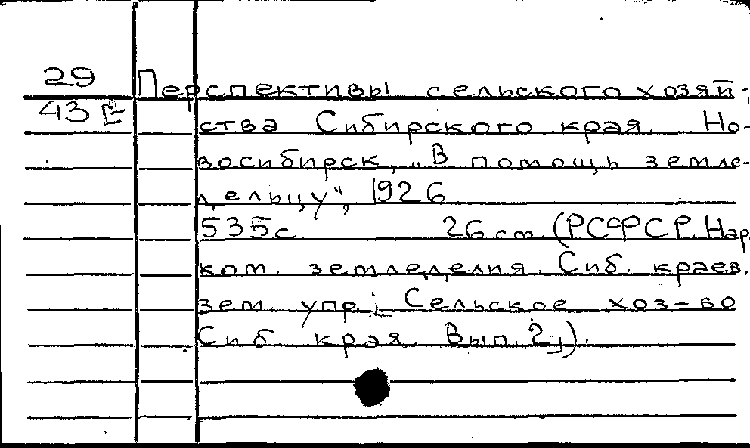 29
43 Е
Перспективы сельского хозяй-
ства Сибирского края. Но-
восибирск, „В помощь земле-
дельцу", 1926
535с. 26 см. (РСФСР. Нар.
ком. земледелия. Сиб. краев.
зем. упр. Сельское хоз-во
Сиб. края. Вып. 2,).